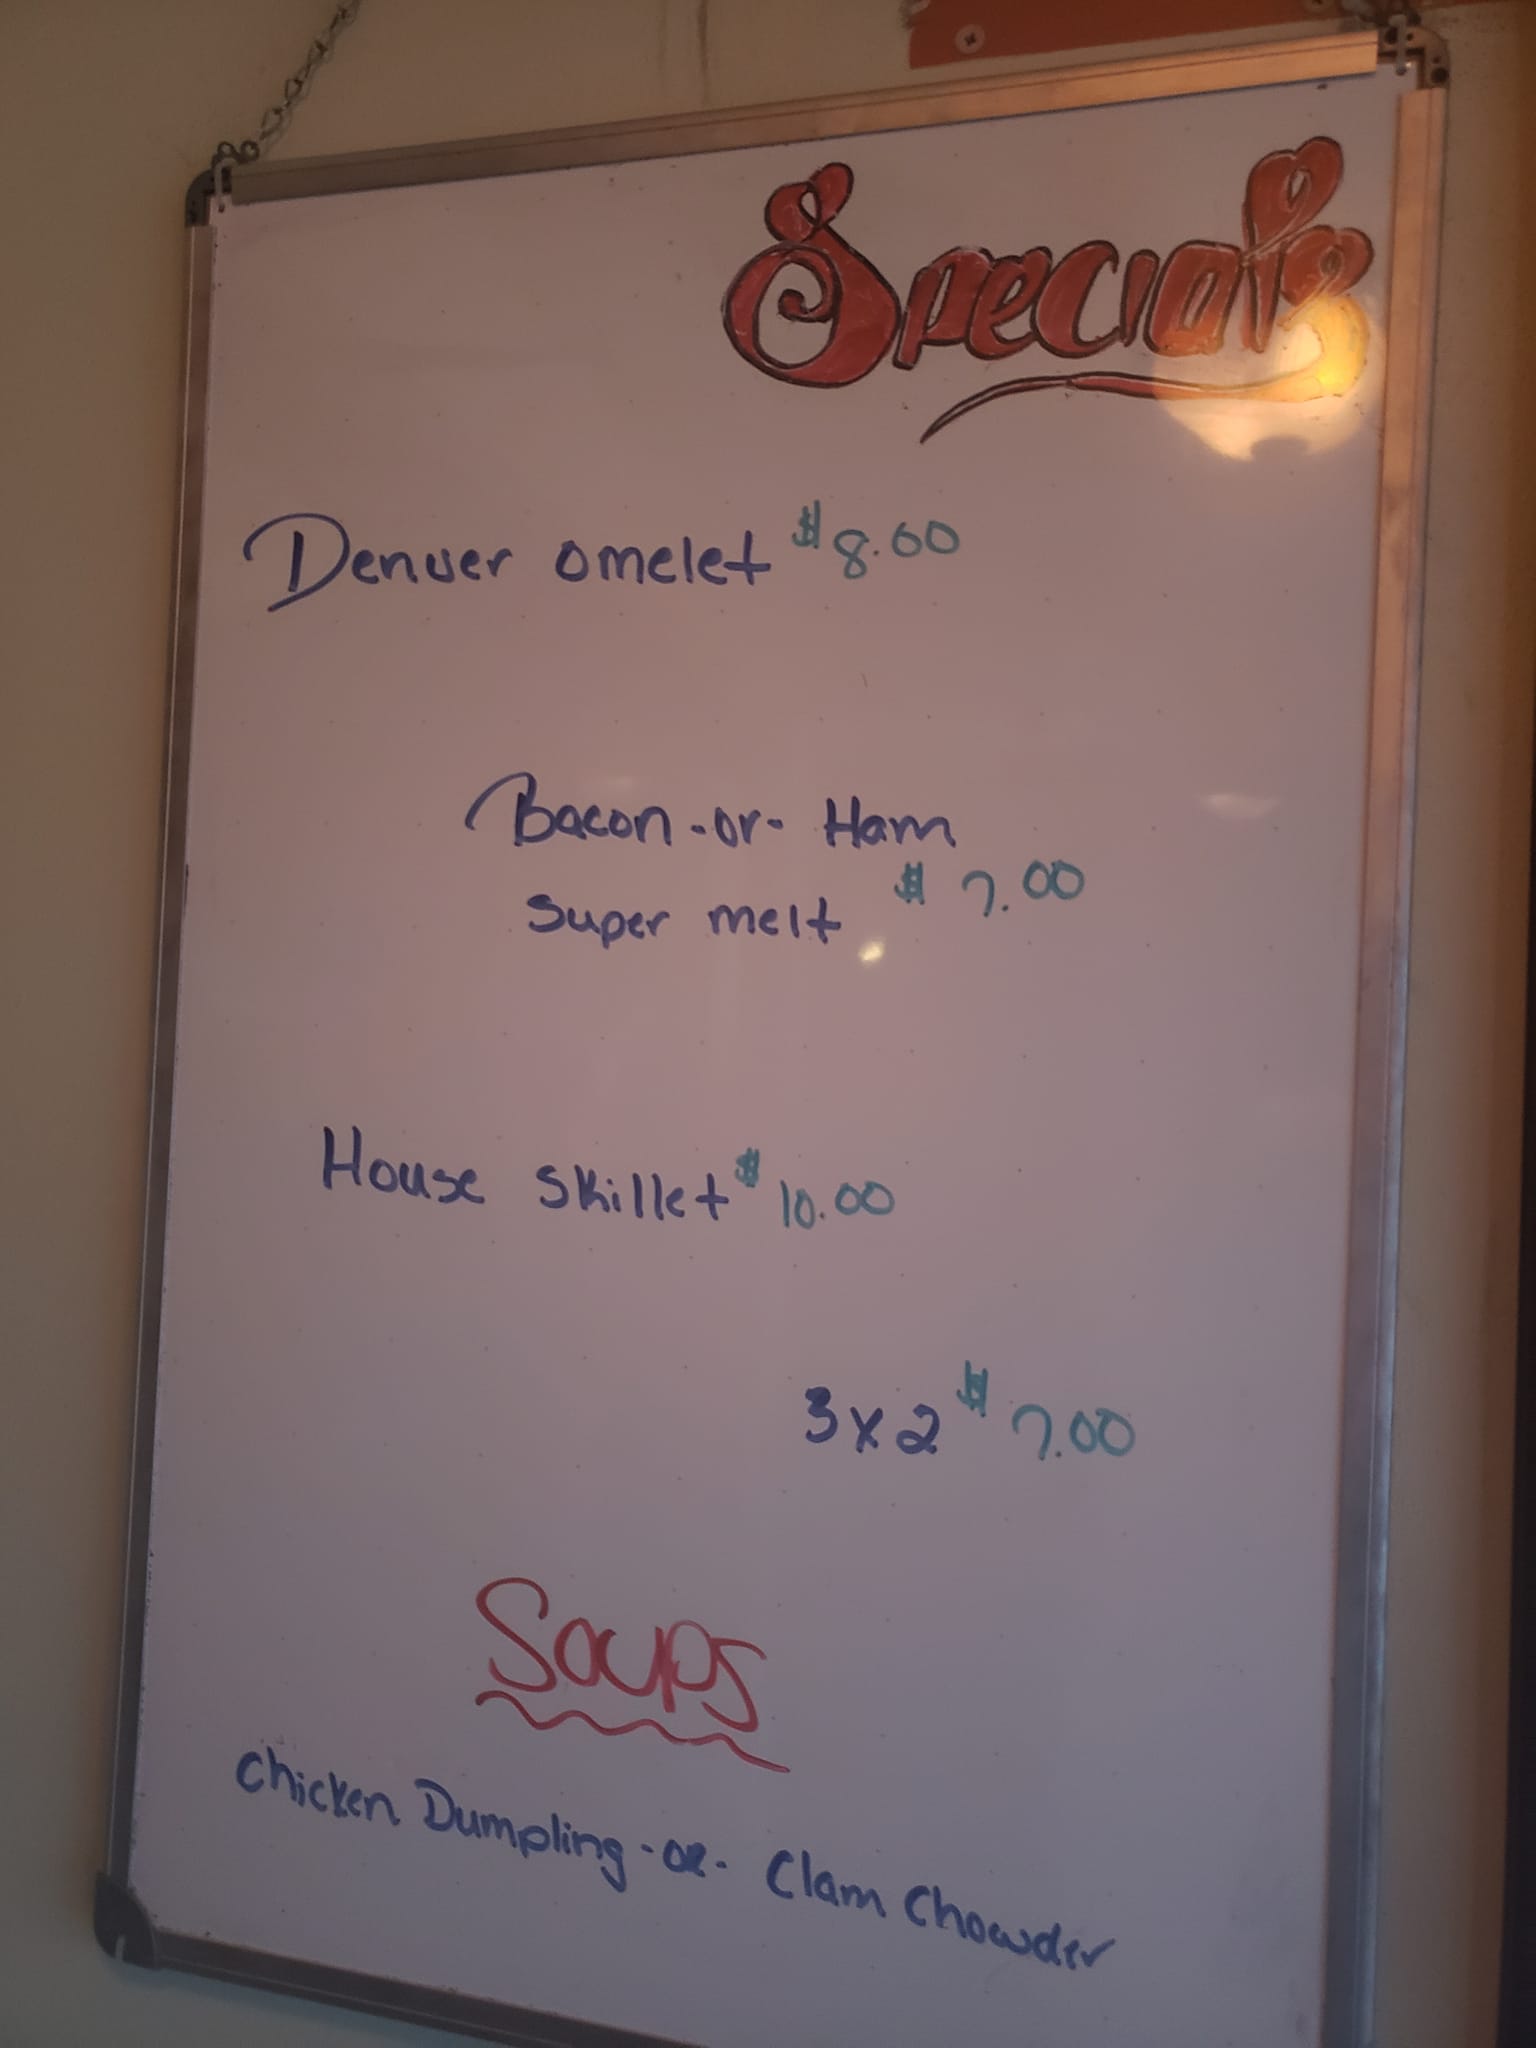 Specials
Denver omelet $8.00
Bacon -or- Ham
Super melt $7.00
House Skillet $10.00
3x2 $7.00
Soups
Chicken Dumpling -or- Clam Chowder